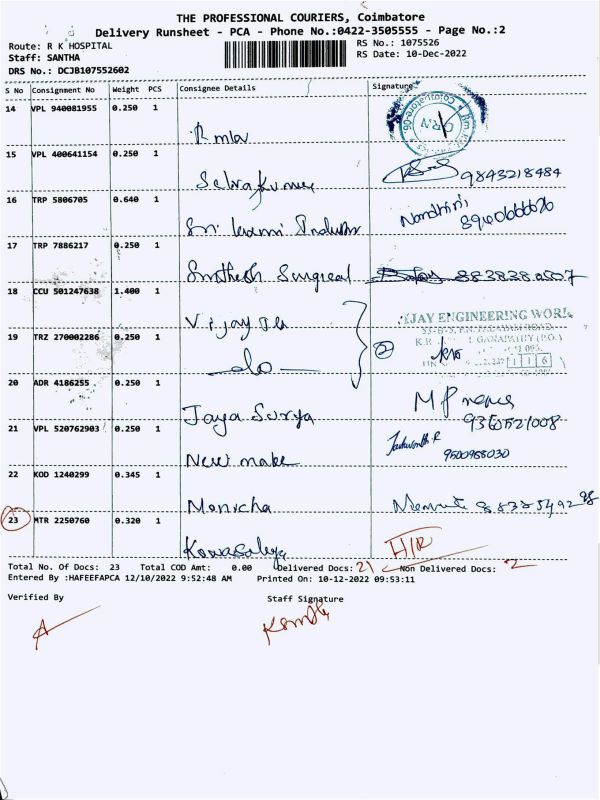 THE PROFESSIONAL COURIERS, Coimbatore
Delivery Runsheet - PCA - Phone No.:0422-3505555 - Page No.:2
Route: R K HOSPITAL
RS No.: 1075526
Staff: SANTHA
RS Date: 10-Dec-2022
DRS No.: DCJB107552602
S No Consignment No Weight PCS Consignee Details Signature
14 VPL 940081955 0.250 1
15 VPL 400641154 0.250 1
Selvakumar 9843218484
16 TRP 5806705 0.640 1
Nandhini
Sri Laxmi
17 TRP 7886217 0.250 1
Surgical
18 CCU 501247638 1.400 1
Vijay
VIJAY ENGINEERING WORK
19 TRZ 270002286 0.250 1
GANAPATHY (P.O.)
do 2
20 ADR 4186255 0.250 1
Jaya Surya
9360521008
21 VPL 520762903 0.250 1
New make 9500958030
22 KOD 1240299 0.345 1
Monicha
23 MTR 2250760 0.320 1
Kowsalya H/R
Total No. Of Docs: 23 Total COD Amt: 0.00 Delivered Docs: 21 Non Delivered Docs: 2
Entered By :HAFEEFAPCA 12/10/2022 9:52:48 AM Printed On: 10-12-2022 09:53:11
Verified By Staff Signature